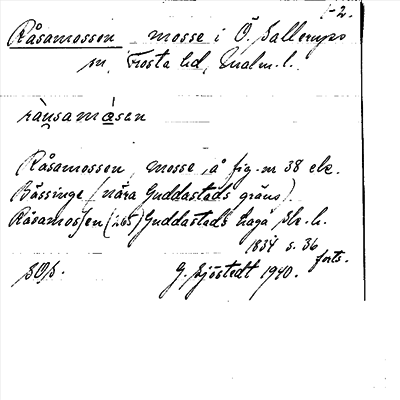 1-2.
Råsamossen mosse i Ö. Sallerups
sn, Frosta hd, Malm. l.
rånsamåsen
Råsamossen, mosse, å fig. nr 38 ek.
Bässinge (nära Guddastads gräns).
Råsamossen (265) Guddastads haga sk. h.
1834 s. 36
forts.
G. Sjöstedt 1940.